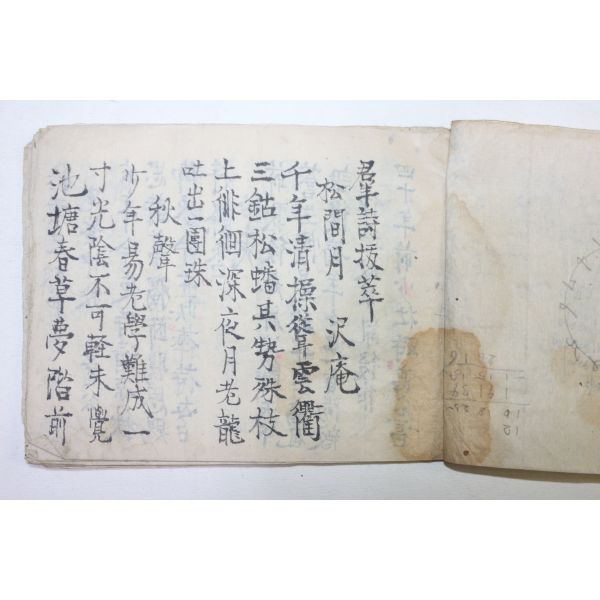 君羊詩抜萃
松間月 沢庵
千年清操聳雲衢
三鈷松蟠其勢殊枝
上徘徊深夜月老龍
吐出一團珠
秋聲
少年易老學難成一
寸光陰不可軽未覺
池塘春草夢階前